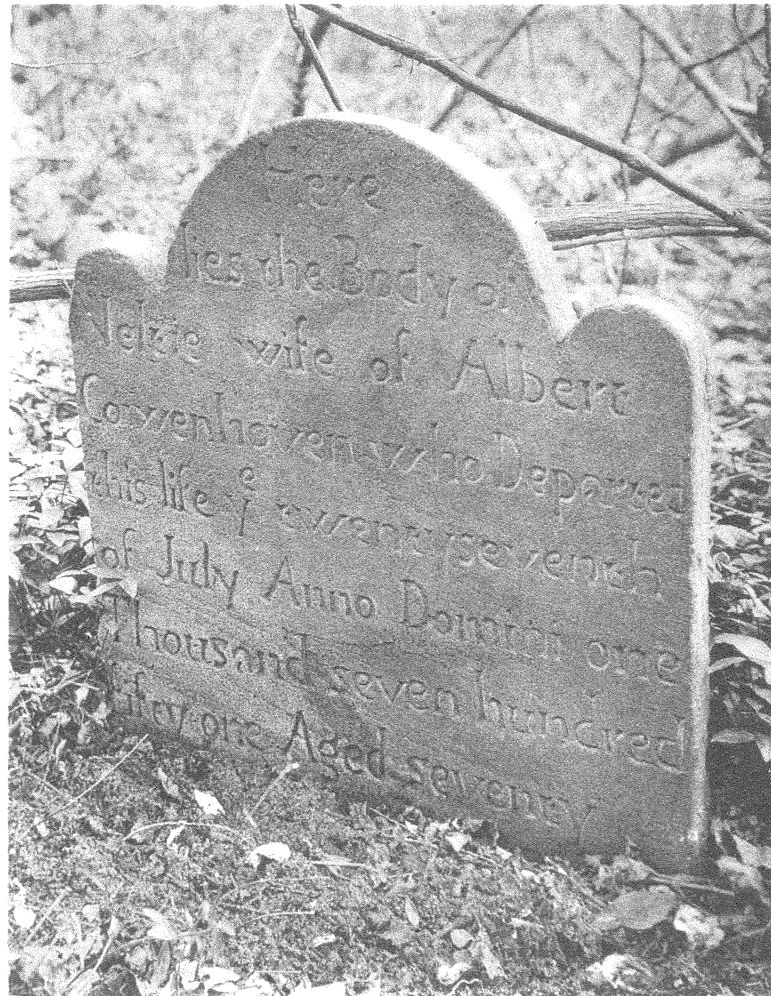 Here
lies the Body of
Nelkie wife of Albert
Cowenhoven who Deparced
this life yᵉ twentysevench
of July Anno Domini one
Thousand seven hundred
Fifty one Aged seventy